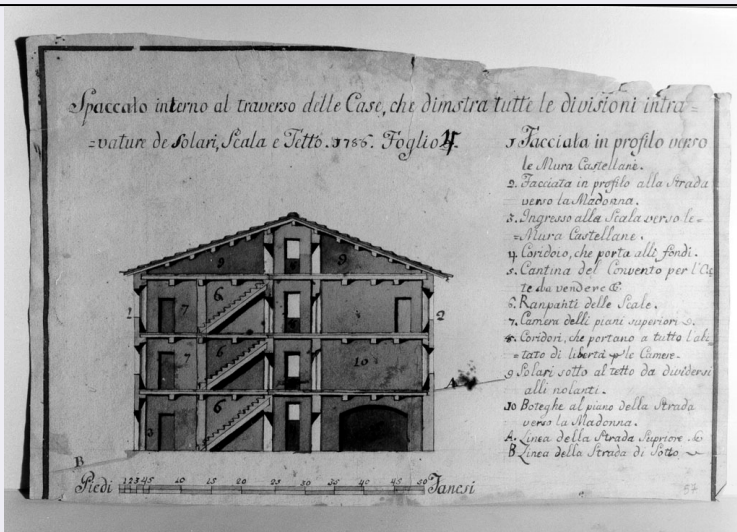 Spaccato interno al traverso delle Case, che dimstra tutte le divisioni intra=
=vature de Solari, Scala e Tetto. 1786. Foglio 4.
1 Facciata in profilo verso
le Mura Castellane.
2. Facciata in profilo alla Strada
verso la Madonna.
3. Ingresso alla Scala verso le=
=Mura Castellane.
4 Coridoio, che porta alli fondi.
5. Cantina del Convento per l'
te da vendere &.
6. Ranpanti delle Scale.
7. Camera delli piani superiori
8. Coridori, che portano a tutto l'abi
=tato di libertà p le Camere.
9 Solari sotto al tetto da dividersi
alli nolanti.
10 Boteghe al piano della Strada
verso la Madonna.
A. Linea della Strada Supriore
B Linea della Strada di Sotto
9 9
6
1 7 2
6
7 10
A
6
3
B
Piedi 1 2 3 4 5 10 15 20 25 30 35 40 45 50 Fanesi
57